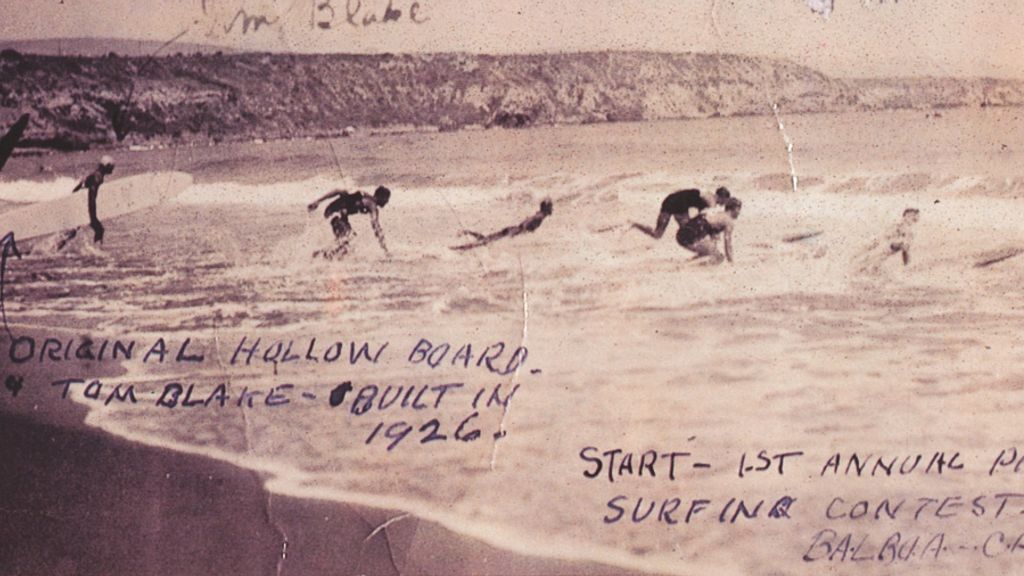 Tom Blake
ORIGINAL HOLLOW BOARD.
& TOM BLAKE - BUILT IN
1926.
START - 1ST ANNUAL PA
SURFING CONTEST.
BALBOA - CA